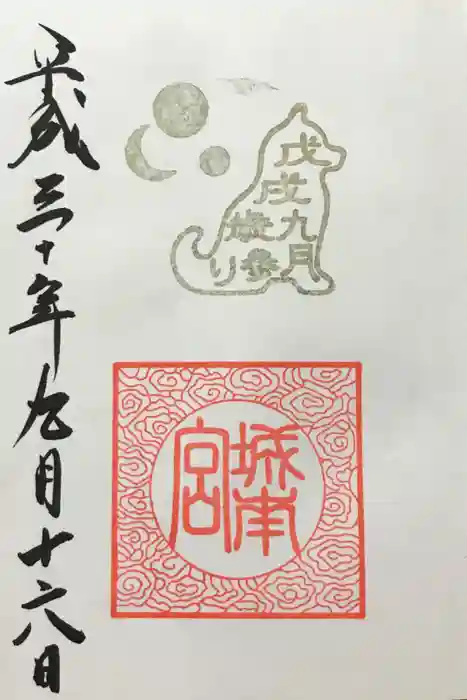 戊戌九月
歳参り
城南宮
平成三十年九月十六日